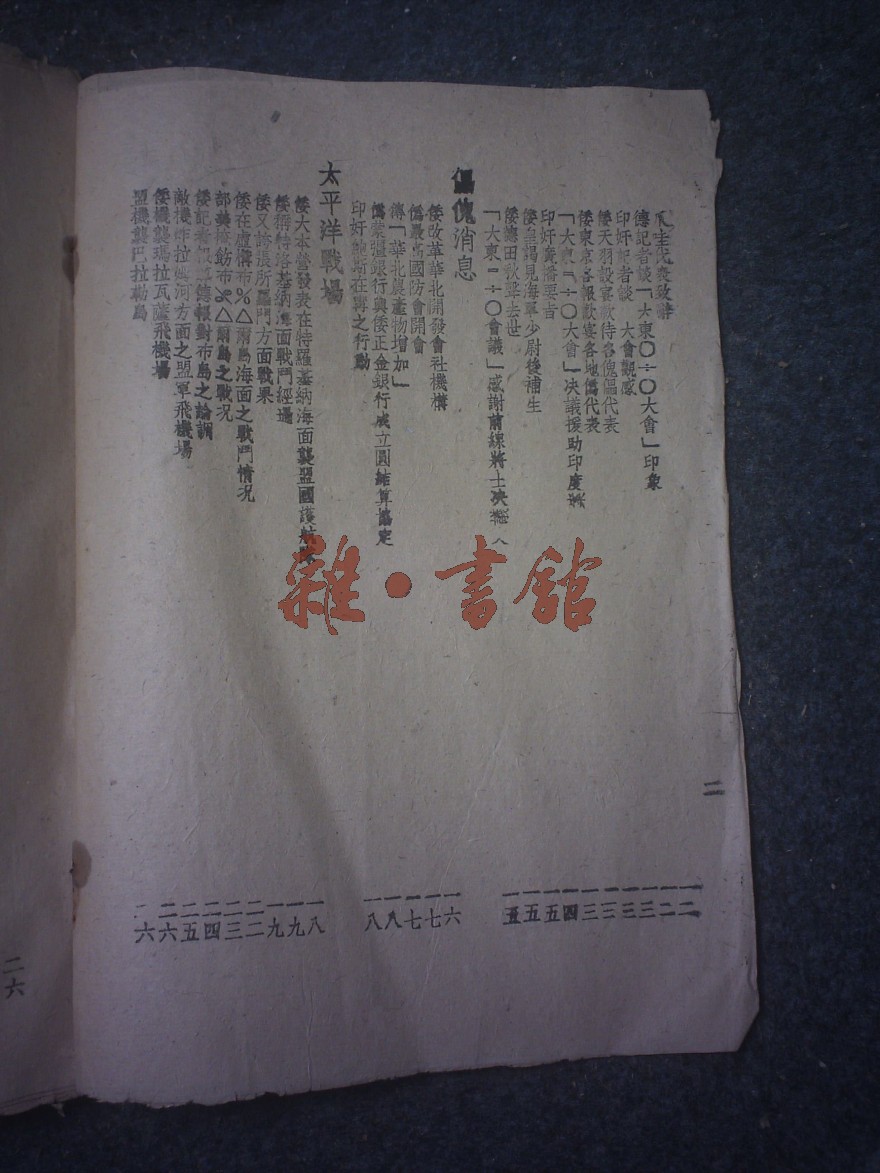 代表致辭
傳記者談「大東〇·〇大會」印象
印奸記者談 大會觀感
倭天羽設宴欵待各傀儡代表
倭東京各報欵宴各地僞代表
「大東〇大會」决議援助印度
印奸廣播要旨
倭皇謁見海軍少尉後補生
倭德田秋聲去世
「大東÷〇會議」感謝前線將士决
傀消息
倭改革華北開發會社機構
僞最高國防會開會
傳「華北農產物增加」
僞蒙疆銀行與倭正金銀行成立圓結算協定
印奸鮑斯在寧之行動
太平洋戰場
倭大本營發表在特羅基納海面襲盟國護航隊
倭稱特路基納海面戰鬥經過
倭又誇張所羅門方面戰果
倭在虛構布%△爾島海面之戰鬥情况
部掩飾布%△爾島之戰况
倭記者報導德報對布島之論調
敵機炸拉姆河方面之盟軍飛機場
倭機襲瑪拉瓦薩飛機場
盟機襲巴拉勒島
二
一二
一二
一三
一三
一三
一四
一五
一五
一五
一六
一七
一七
一八
一八
一八
一九
一九
二二
二三
二四
二五
二六
二六
二六
雜·書館